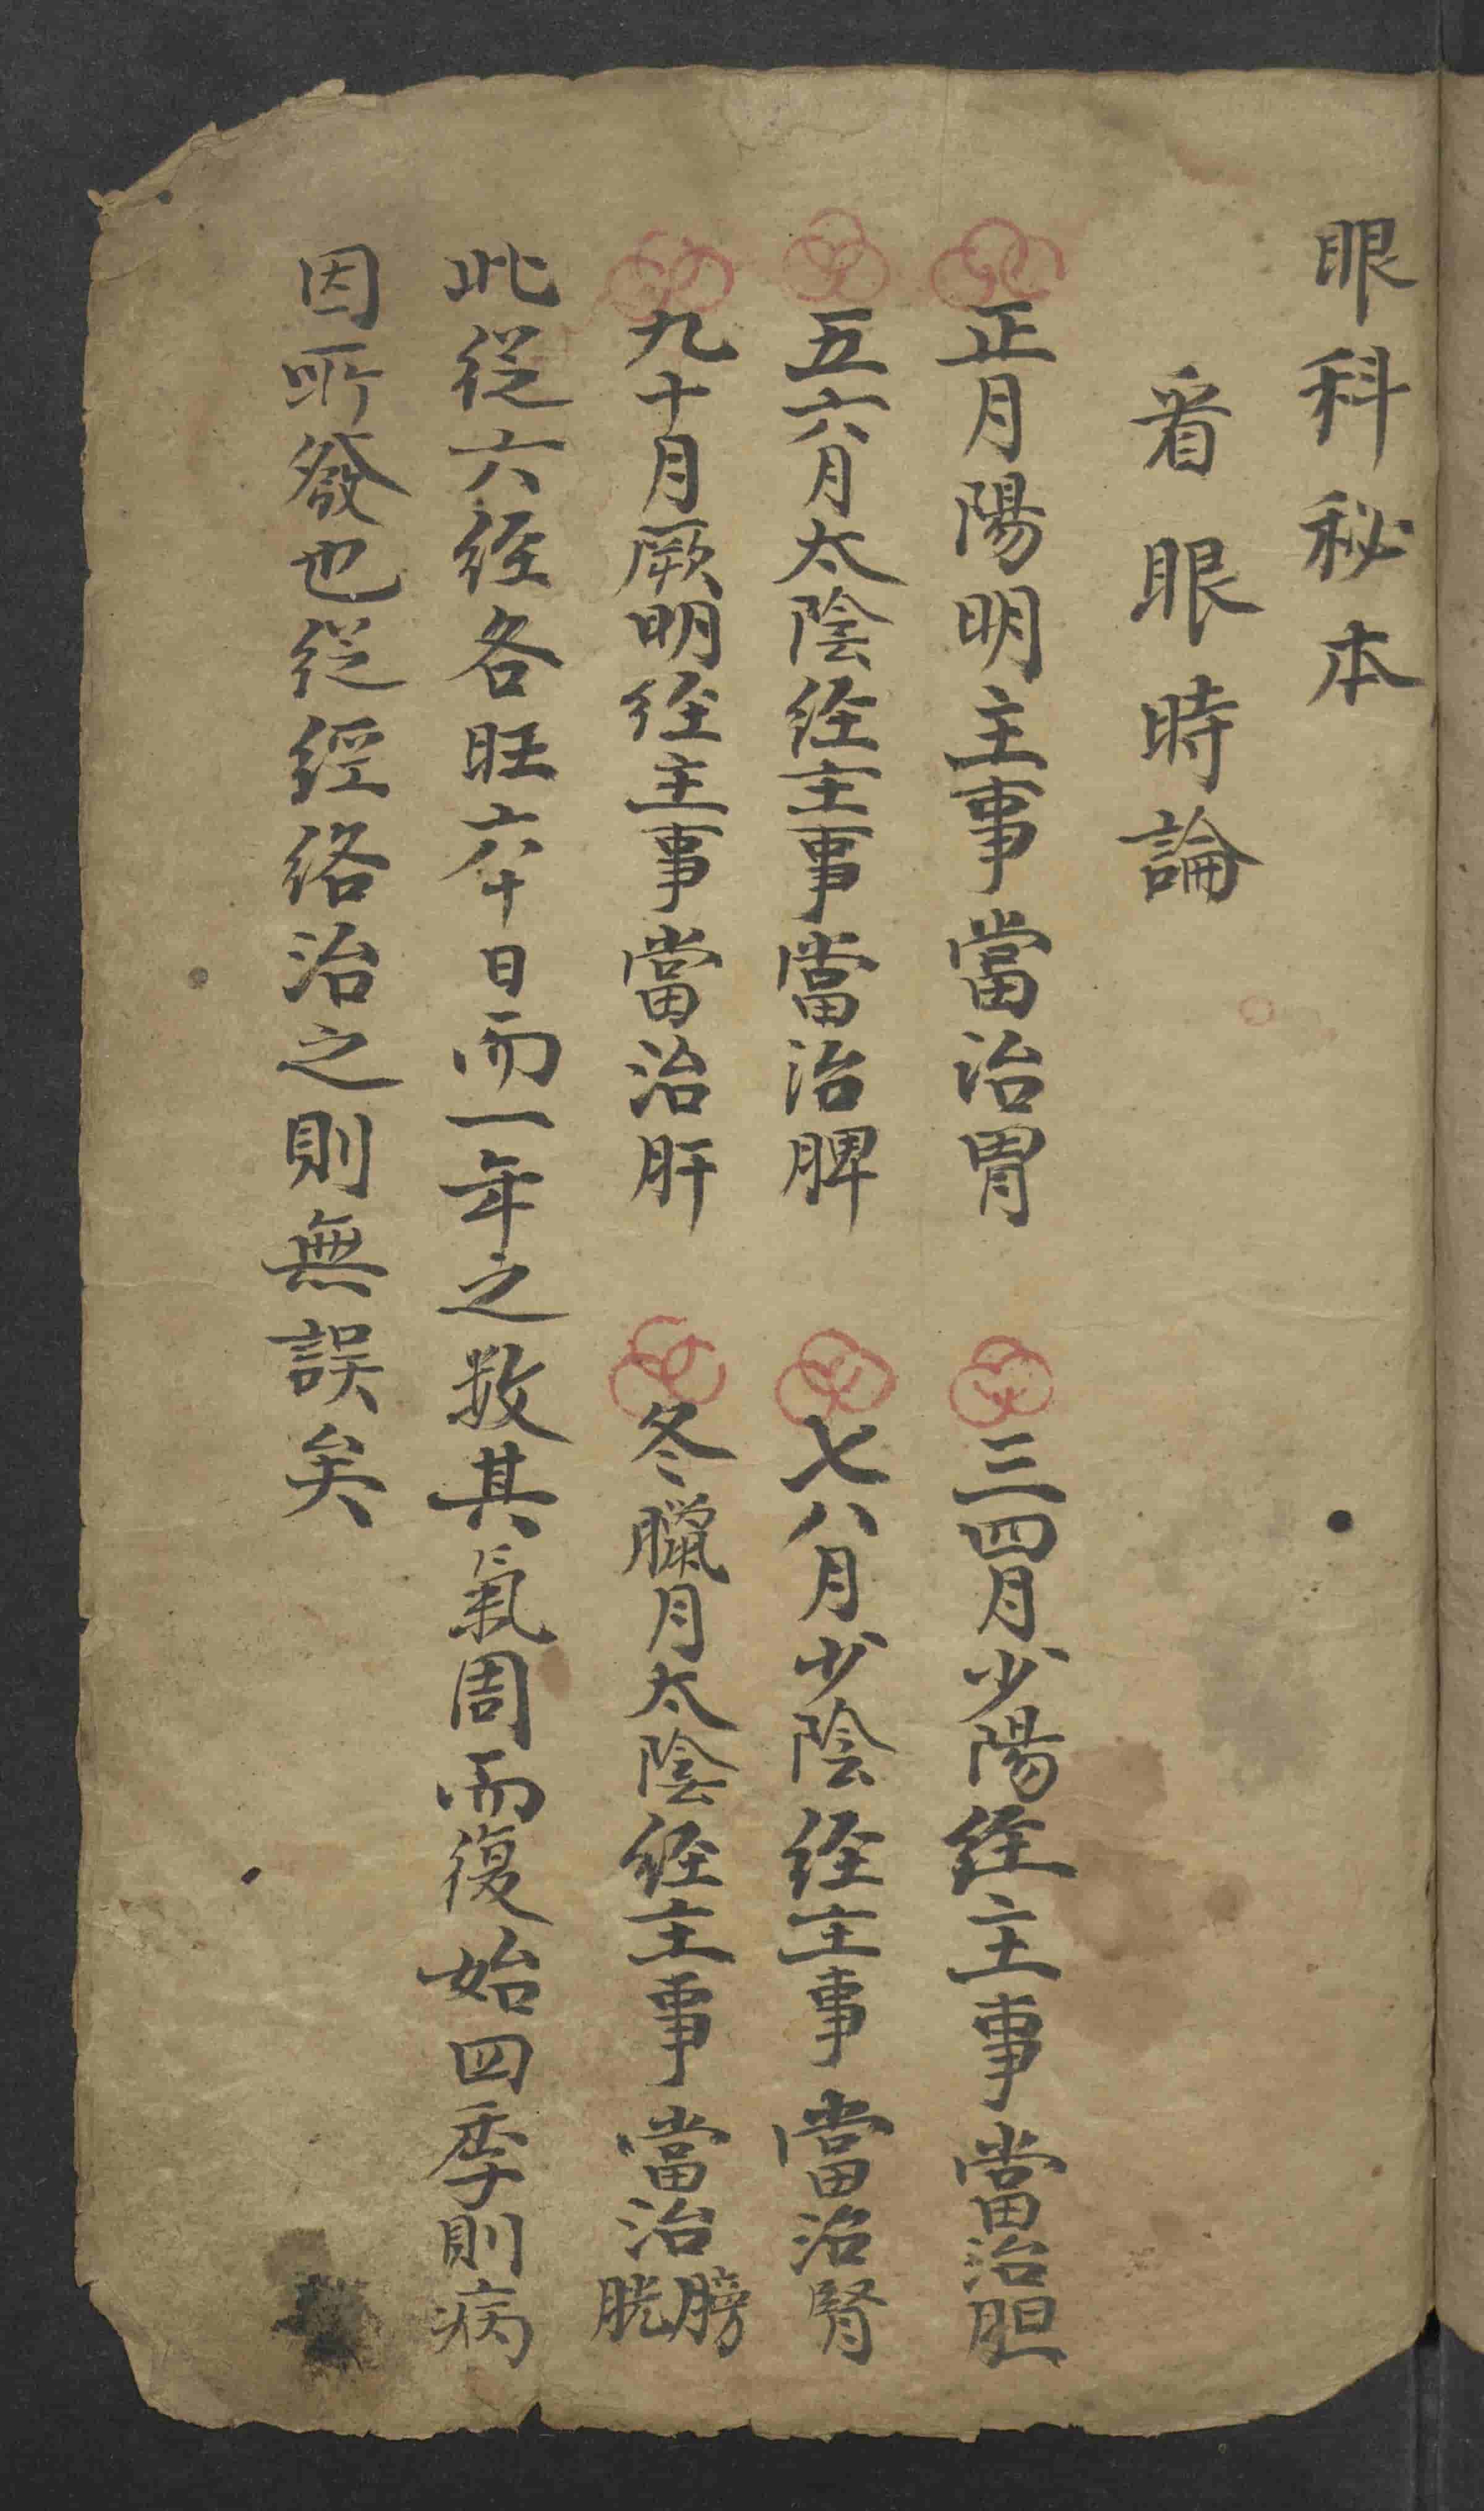 眼科秘本
看眼時論
正月陽明主事當治胃 三四月少陽经主事當治胆
五六月太陰经主事當治脾 七八月少陰经主事當治腎
九十月厥明经主事當治肝 冬臘月太陰经主事當治膀胱
此從六经各旺六十日而一年之数其氣周而復始四季則病
因所發也從經络治之則無誤矣